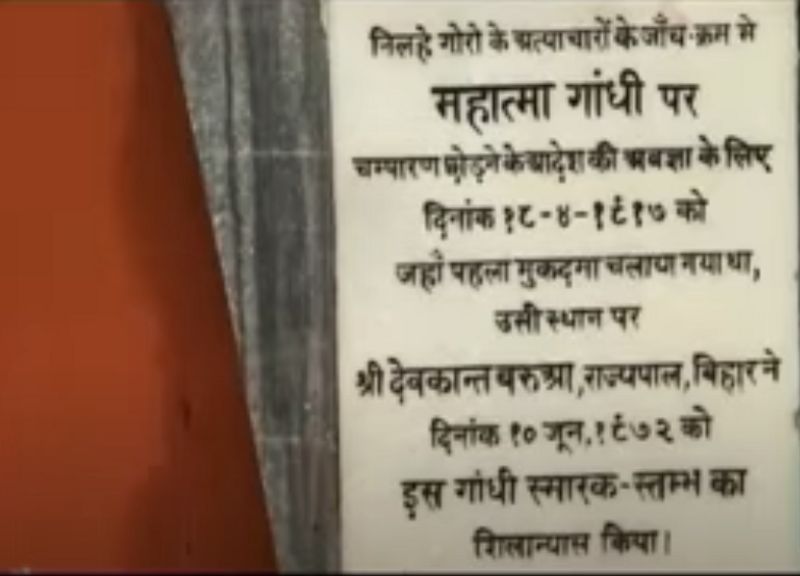 निलहे गोरो के अत्याचारों के जाँच-क्रम मे
महात्मा गांधी पर
चम्पारण छोड़ने के आदेश की अवज्ञा के लिए
दिनांक १८-४-१९१७ को
जहाँ पहला मुकदमा चलाया गया था,
उसी स्थान पर
श्री देवकान्त बरुआ, राज्यपाल, बिहार ने
दिनांक १० जून, १९७२ को
इस गांधी स्मारक-स्तम्भ का
शिलान्यास किया।